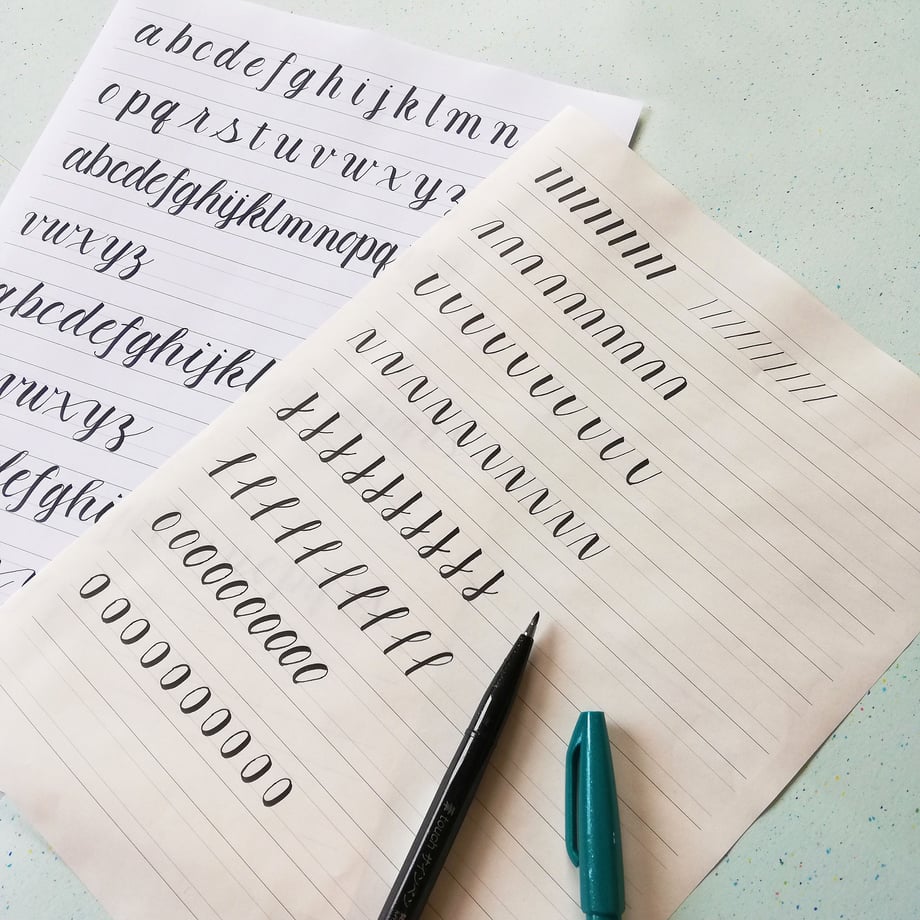 a b c d e f g h i j k l m n
o p q r s t u v w x y z
abcdefghijklmnopq
vwxyz
abcdefghijkl
vwxyz
defghi
touch サインペン